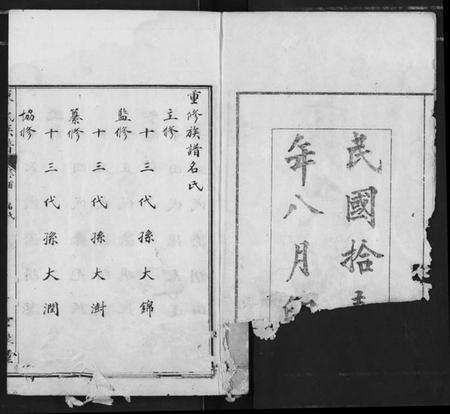 民國拾
年八月
重修族譜名氏
主修
十三代孫大錦
監修
十三代孫大澍
纂修
十三代孫大潤
協修